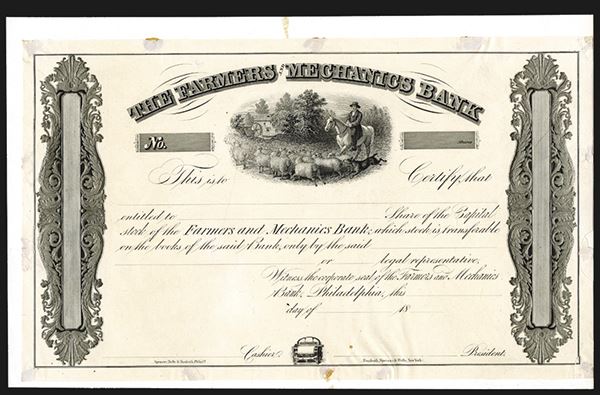 THE FARMERS AND MECHANICS BANK
No. Shares
This is to Certify, that
entitled to Share of the Capital
stock of the Farmers and Mechanics Bank; which stock is transferable
on the books of the said Bank, only by the said
or legal representative.
Witness the corporate seal of the Farmers and Mechanics
Bank, Philadelphia, this
day of 18
Cashier. President.